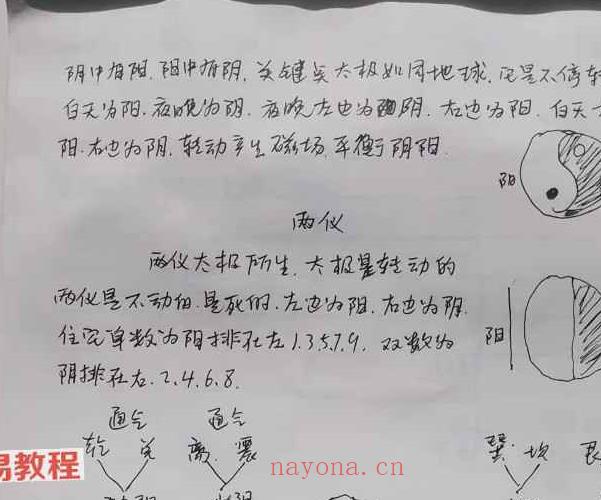 阴中有阳.阳中有阴.关键是太极如同地球.它是不停转
白天为阳.夜晚为阴.夜晚左边为阴.右边为阳.白天
阳.右边为阴.转动产生磁场.平衡阴阳.
阳
两仪
两仪太极所生.太极是转动的
两仪是不动的.是死的.左边为阳.右边为阴.
住宅单数为阳排在左1.3.5.7.9.双数为
阳
阴排在右.2.4.6.8.
通气 通气
乾 兑 离.震 巽.坎 艮
易教程
nayona.cn